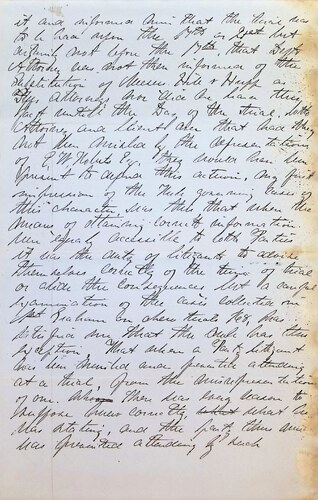 it and informed him that the Trial was
to be had upon the or but
not upon the 17th, that Depts
Attorney was not then informed of the
substitution of Messrs Hill & Huff as
Plffs Attorney nor did he have this
fact until the Day of the trial, both
Attorney and Client swear that had they
not been misled by the representations
of P. W. Roberts Esq. they would have been
present to defend this action. My first
impression of the rule governing cases of
this character, was this that when the
means of obtaining correct information
were equally accessible to both Parties
it was the duty of litigants to advise
themselves correctly of the time of trial
or abide the consequences but a careful
examination of the cases collected in
1st Graham on New trials 168,
me that the Rule has this
exception That when a Party litigant
was misled and prevented attending
at a trial, from the misrepresentation
of one. Who There was every reason to
suppose knew correctly, what what he
was stating, and the party thus misled
was prevented attending by such